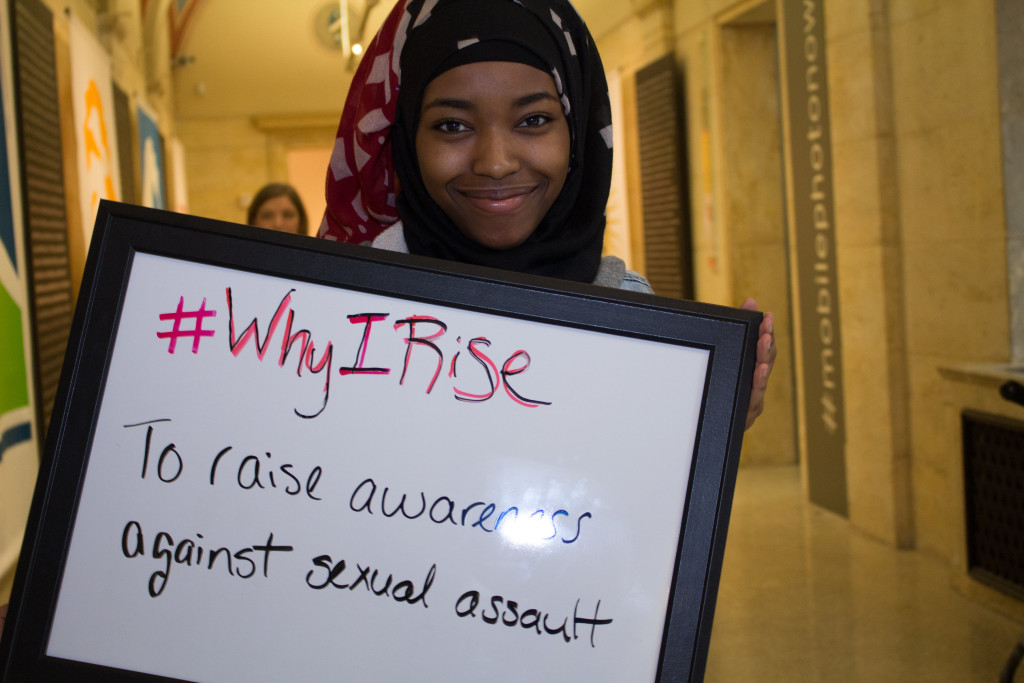 #WhyIRise
To raise awareness
against sexual assault
#mobilephotonow